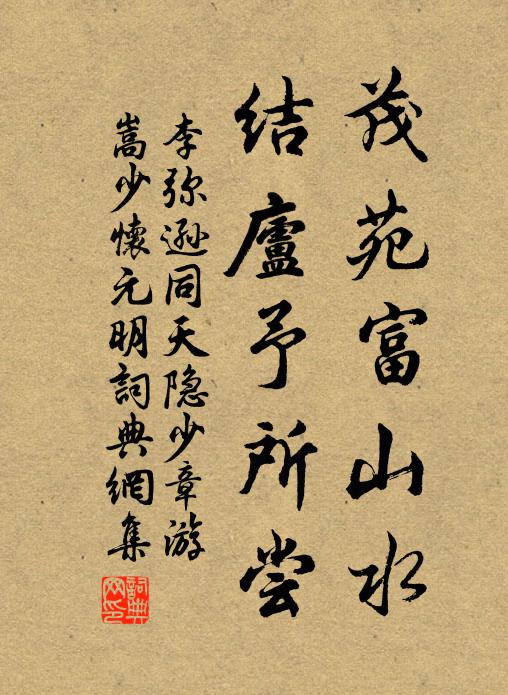 茂苑富山水
结廬予所尝
李弥遜同天隐少章游
嵩少懷元明詞典網集
詞典網印